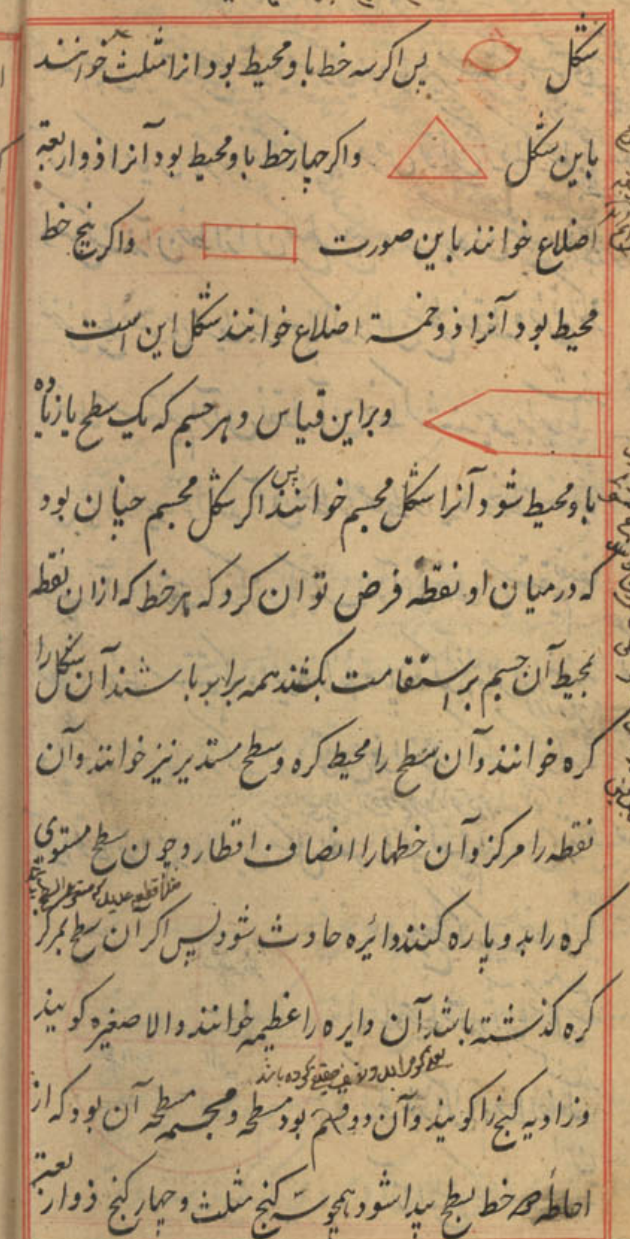 شکل پس اکر سه خط باو محیط بود انرا مثلث خوانند
باین شکل واکر چهار خط باو محیط بود آنرا ذو اربعة
اضلاع خوانند باین صورت واکر پنج خط
محیط بود آنرا ذو خمسة اضلاع خوانند شکل این است
و براین قیاس و هر جسم که یک سطح یا زیاده
باو محیط شود آنرا شکل مجسم خوانند پس اکر شکل مجسم چنان بود
که درمیان او نقطه فرض توان کرد که هر خط که ازان نقطه
بمحیط آن جسم بر استقامت بکشند همه برابر باشند آن شکل را
کره خوانند وآن سطح را محیط کره و سطح مستدیر نیز خوانند وآن
نقطه را مرکز وآن خطها را انصاف اقطار و چون سطح مستوی
کره را بدو پاره کنند دایره حادث شود پس اکر آن سطح بمرکز
کره کذشته باشد آن دایره را عظیمه خوانند والا صغیره کویند
و زاویه کنج را کویند وآن دو قسم بود مسطحه و مجسمه مسطحه آن بود که از
احاطه دو خط بسطح پیدا شود همچو سه کنج مثلث و چهار کنج ذو اربعة